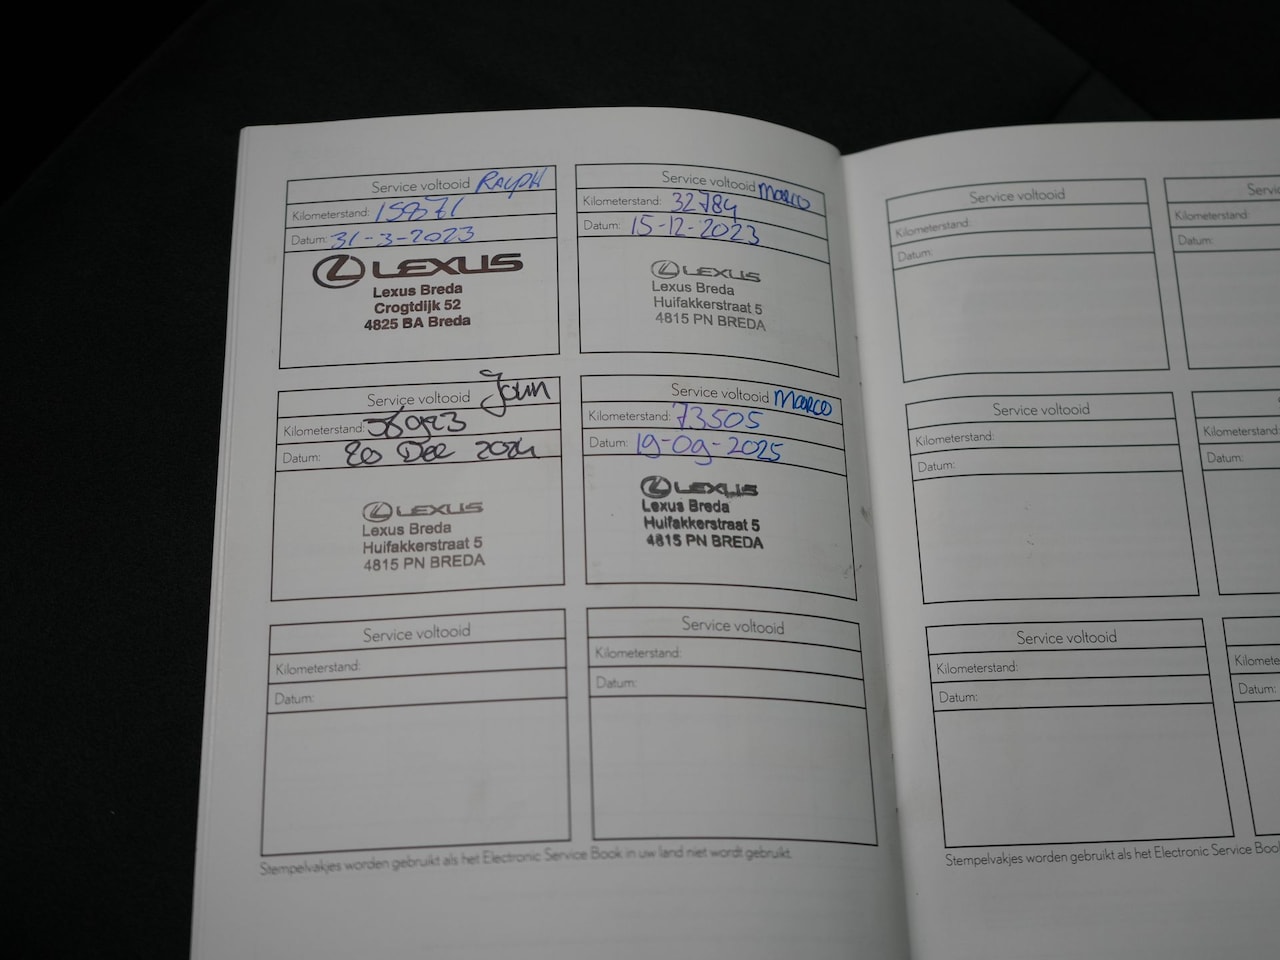 Service voltooid RALPH
Kilometerstand: 15871
Datum: 31-3-2023
LEXUS
Lexus Breda
Crogtdijk 52
4825 BA Breda
Service voltooid MARCO
Kilometerstand: 32784
Datum: 15-12-2023
LEXUS
Lexus Breda
Huifakkerstraat 5
4815 PN BREDA
Service voltooid John
Kilometerstand:
Datum: 20 Dec 2024
LEXUS
Lexus Breda
Huifakkerstraat 5
4815 PN BREDA
Service voltooid MARCO
Kilometerstand: 73505
Datum: 19-09-2025
LEXUS
Lexus Breda
Huifakkerstraat 5
4815 PN BREDA
Service voltooid
Kilometerstand:
Datum:
Service voltooid
Kilometerstand:
Datum:
Stempelvakjes worden gebruikt als het Electronic Service Book in uw land niet wordt gebruikt.
Service voltooid
Kilometerstand:
Datum:
Kilometerstand:
Datum:
Service voltooid
Kilometerstand:
Datum:
Kilometerstand:
Datum:
Service voltooid
Kilometerstand:
Datum:
Datum:
Stempelvakjes worden gebruikt als het Electronic Service